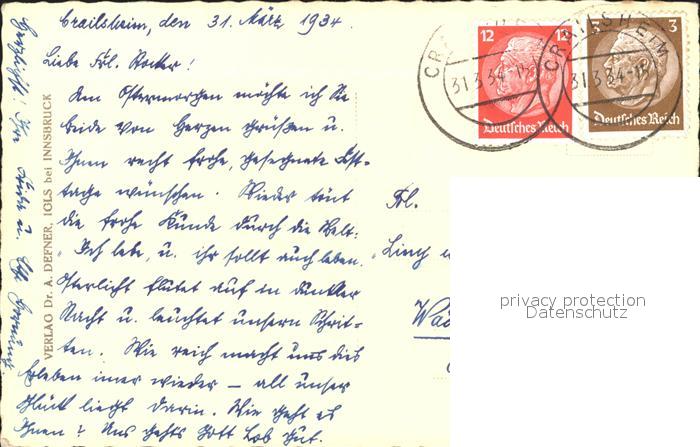 Crailsheim, den 31. März 1934.
Liebe Frl. Rocker!
Am Ostermorgen möchte ich Sie
beide von Herzen grüßen u.
Ihnen recht frohe, gesegnete Fest-
tage wünschen. Wieder tönt
die frohe Kunde durch die Welt:
"Ich lebe, u. ihr sollt auch leben."
Osterlicht flutet auf in dunkler
Nacht u. leuchtet unsern Schrit-
ten. Wie reich macht uns dies
Erleben imer wieder – all unser
Glück liegt darin. Wie geht es
Ihnen? Uns gehts Gott Lob gut.
Herzlichst! Ihre
u.
VERLAG Dr. A. DEFNER, IGLS bei INNSBRUCK
CRAILSHEIM
31.3.34
12 12
Deutsches Reich
CRAILSHEIM
31.3.34
3 3
Deutsches Reich
Frl.
privacy protection
Datenschutz